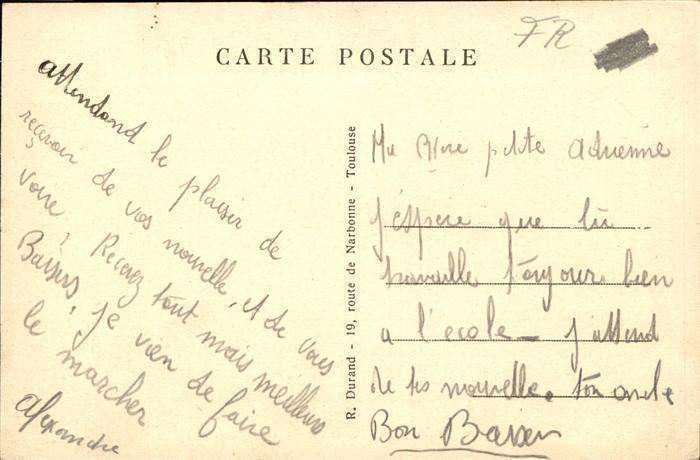 CARTE POSTALE
FR
attendant le plaisir de
reçevoir de vos nouvelle, et de vous
voire, Recevez tout mais meilleurs
Baisers, je vien de faire
le marcher
Alexandre
R. Durand - 19, route de Narbonne - Toulouse
Ma petite adrienne
j'éspere que tu
travaille toujours bien
a l'école - j'attend
de tes nouvelle. ton oncle
Bon Baiser